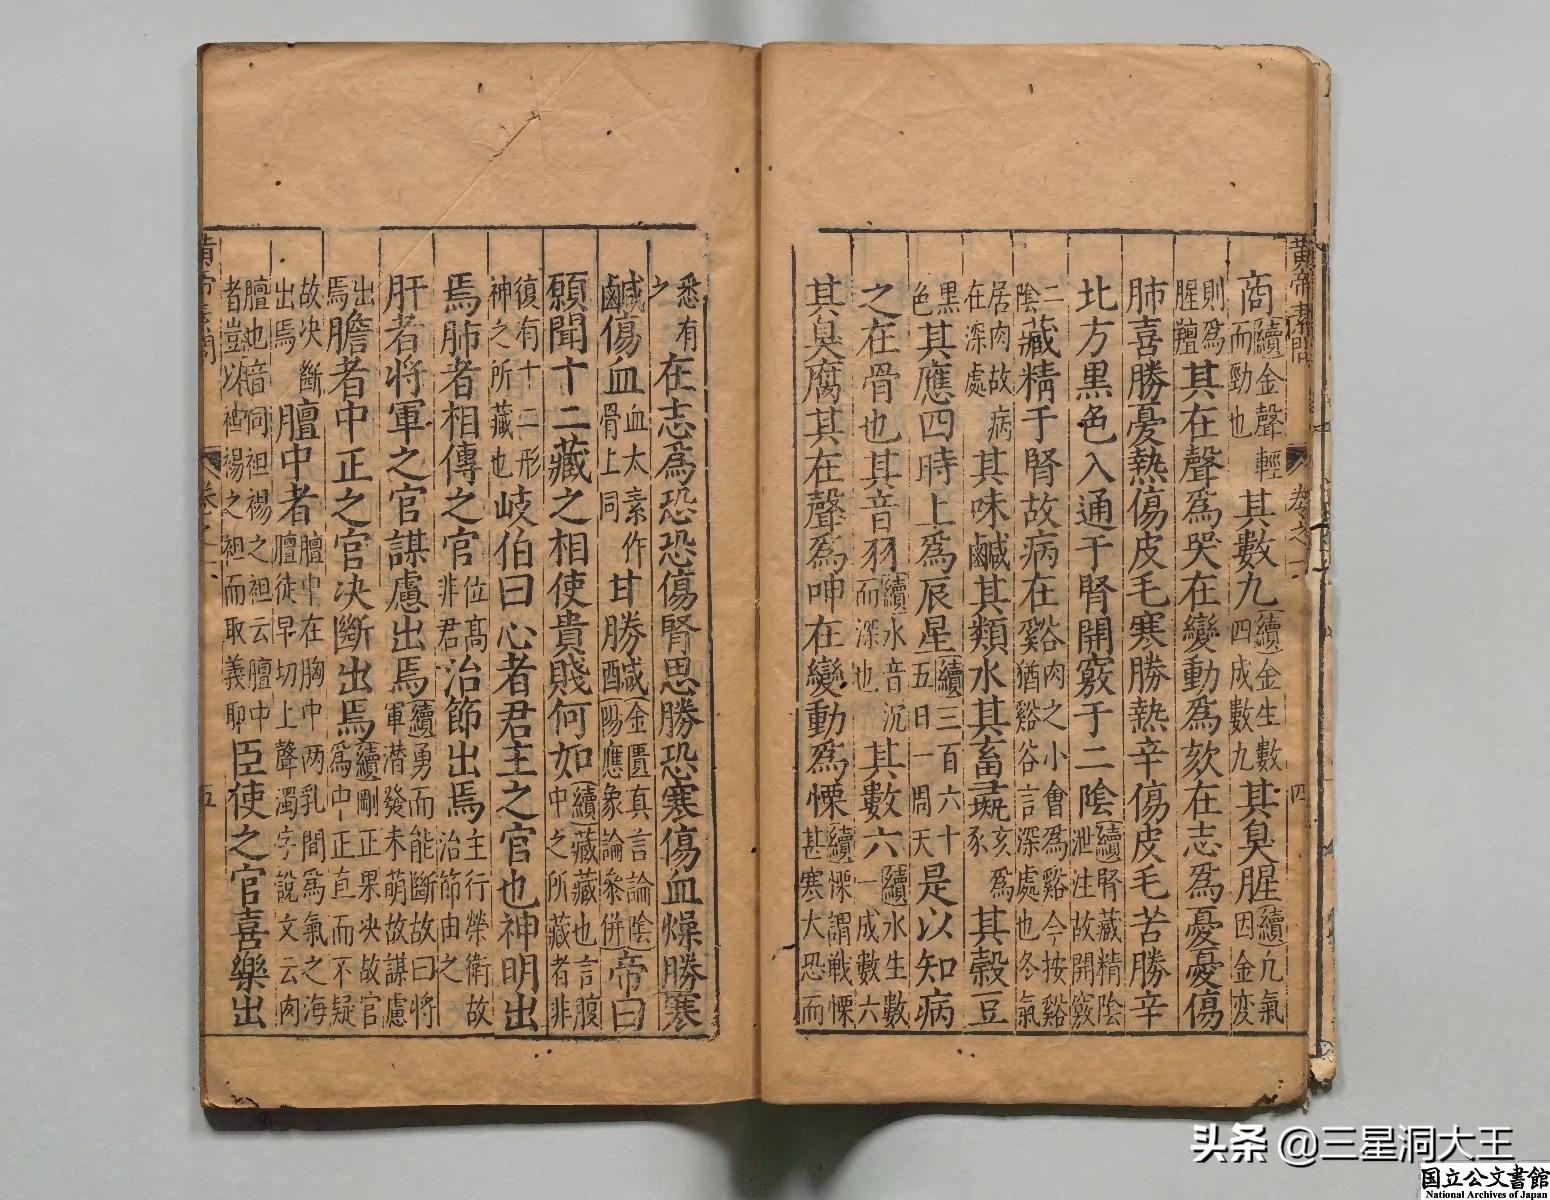 黄帝素問
卷之一
四
商〔續〕金聲輕而勁也其數九〔續〕金生數四成數九其臭腥〔續〕凢氣因金変
則為腥羶其在聲爲哭在變動爲欬在志爲憂憂傷
肺喜勝憂熱傷皮毛寒勝熱辛傷皮毛苦勝辛
北方黒色入通于腎開竅于二隂〔續〕腎藏精隂泄注故開竅
二隂藏精于腎故病在谿肉之小會爲谿今按谿猶谿谷言深處也冬氣
居肉故病在深處其味鹹其類水其畜彘亥爲豕其穀豆
黒色其應四時上爲辰星〔續〕三百六十五日一周天是以知病
之在骨也其音羽〔續〕水音沉而深也其數六〔續〕水生數一成數六
其臭腐其在聲爲呻在變動爲慄〔續〕慄謂戦慄甚寒大恐而
悉有之在志爲恐恐傷腎思勝恐寒傷血燥勝寒
鹹傷血血太素作骨上同甘勝鹹〔金匱真言論隂陽應象論叅併〕帝曰
願聞十二藏之相使貴賎何如〔續〕藏藏也言腹中之所藏者非
復有十二形神之所藏也岐伯曰心者君主之官也神明出
焉肺者相傳之官位高非君治節出焉主行榮衛故治節由之
肝者將軍之官謀慮出焉〔續〕勇而能斷故曰將軍潜發未萌故謀慮
出焉膽者中正之官决斷出焉〔續〕剛正果决故官為中正直而不疑
故决斷出焉膻中者膻中在胸中两乳間爲氣之海膻徒旱切上聲濁字說文云肉
膻也音同袒裼之袒云膻中者豈以袒裼之袒而取義耶臣使之官喜樂出
卷之
五
头条 @三星洞大王
国立公文書館
National Archives of Japan